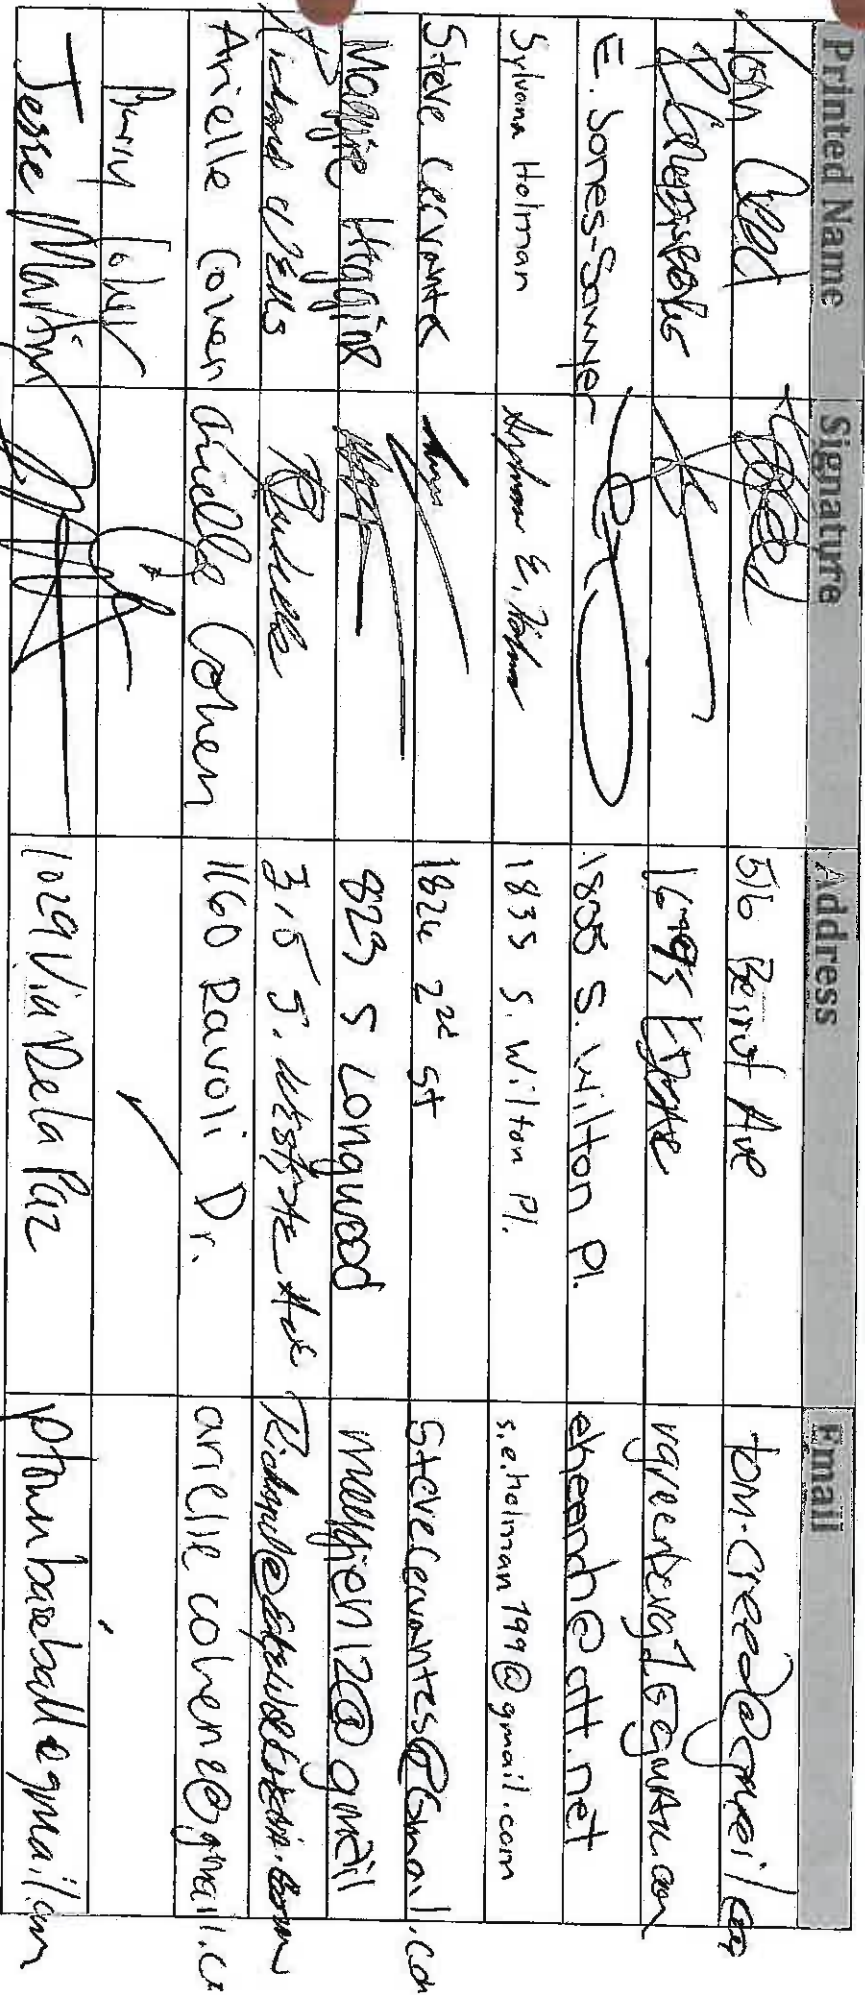 Printed Name Signature Address Email
Tom Creed 516 Beirut Ave tom.creed@gmail.com
R Greenberg rgreenberg1@gmail.com
E. Sones-Sawyer 1805 S. Wilton Pl. eheench@att.net
Sylvana Holman Sylvana E. Holman 1835 S. Wilton Pl. s.e.holman799@gmail.com
Steve Cervantes 1824 2nd St SteveCervantes@Gmail.com
Maggie Higgins 823 S Longwood @gmail
Richard Wells 315 S. Westgate Ave
Arielle Cohen Arielle Cohen 1160 Ravoli Dr. arielle cohen2@gmail.c
Barry Cohen
Jesse Martin 1029 Via De la Paz ptownbaseball@gmail.com